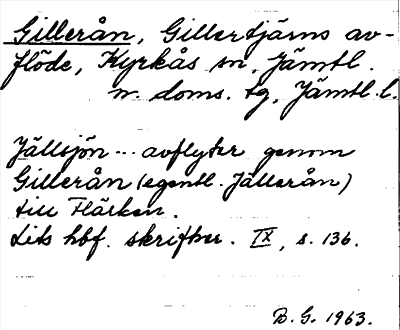 Gillerån, Gillertjärns av-
flöde, Kyrkås sn, Jämtl.
n. doms. tg, Jämtl. l.
Jällsjön --- avflyter genom
Gillerån (egentl. Jällerån)
till Hårken.
Lits hbf. skrifter. IX, s. 136.
B. G. 1963.